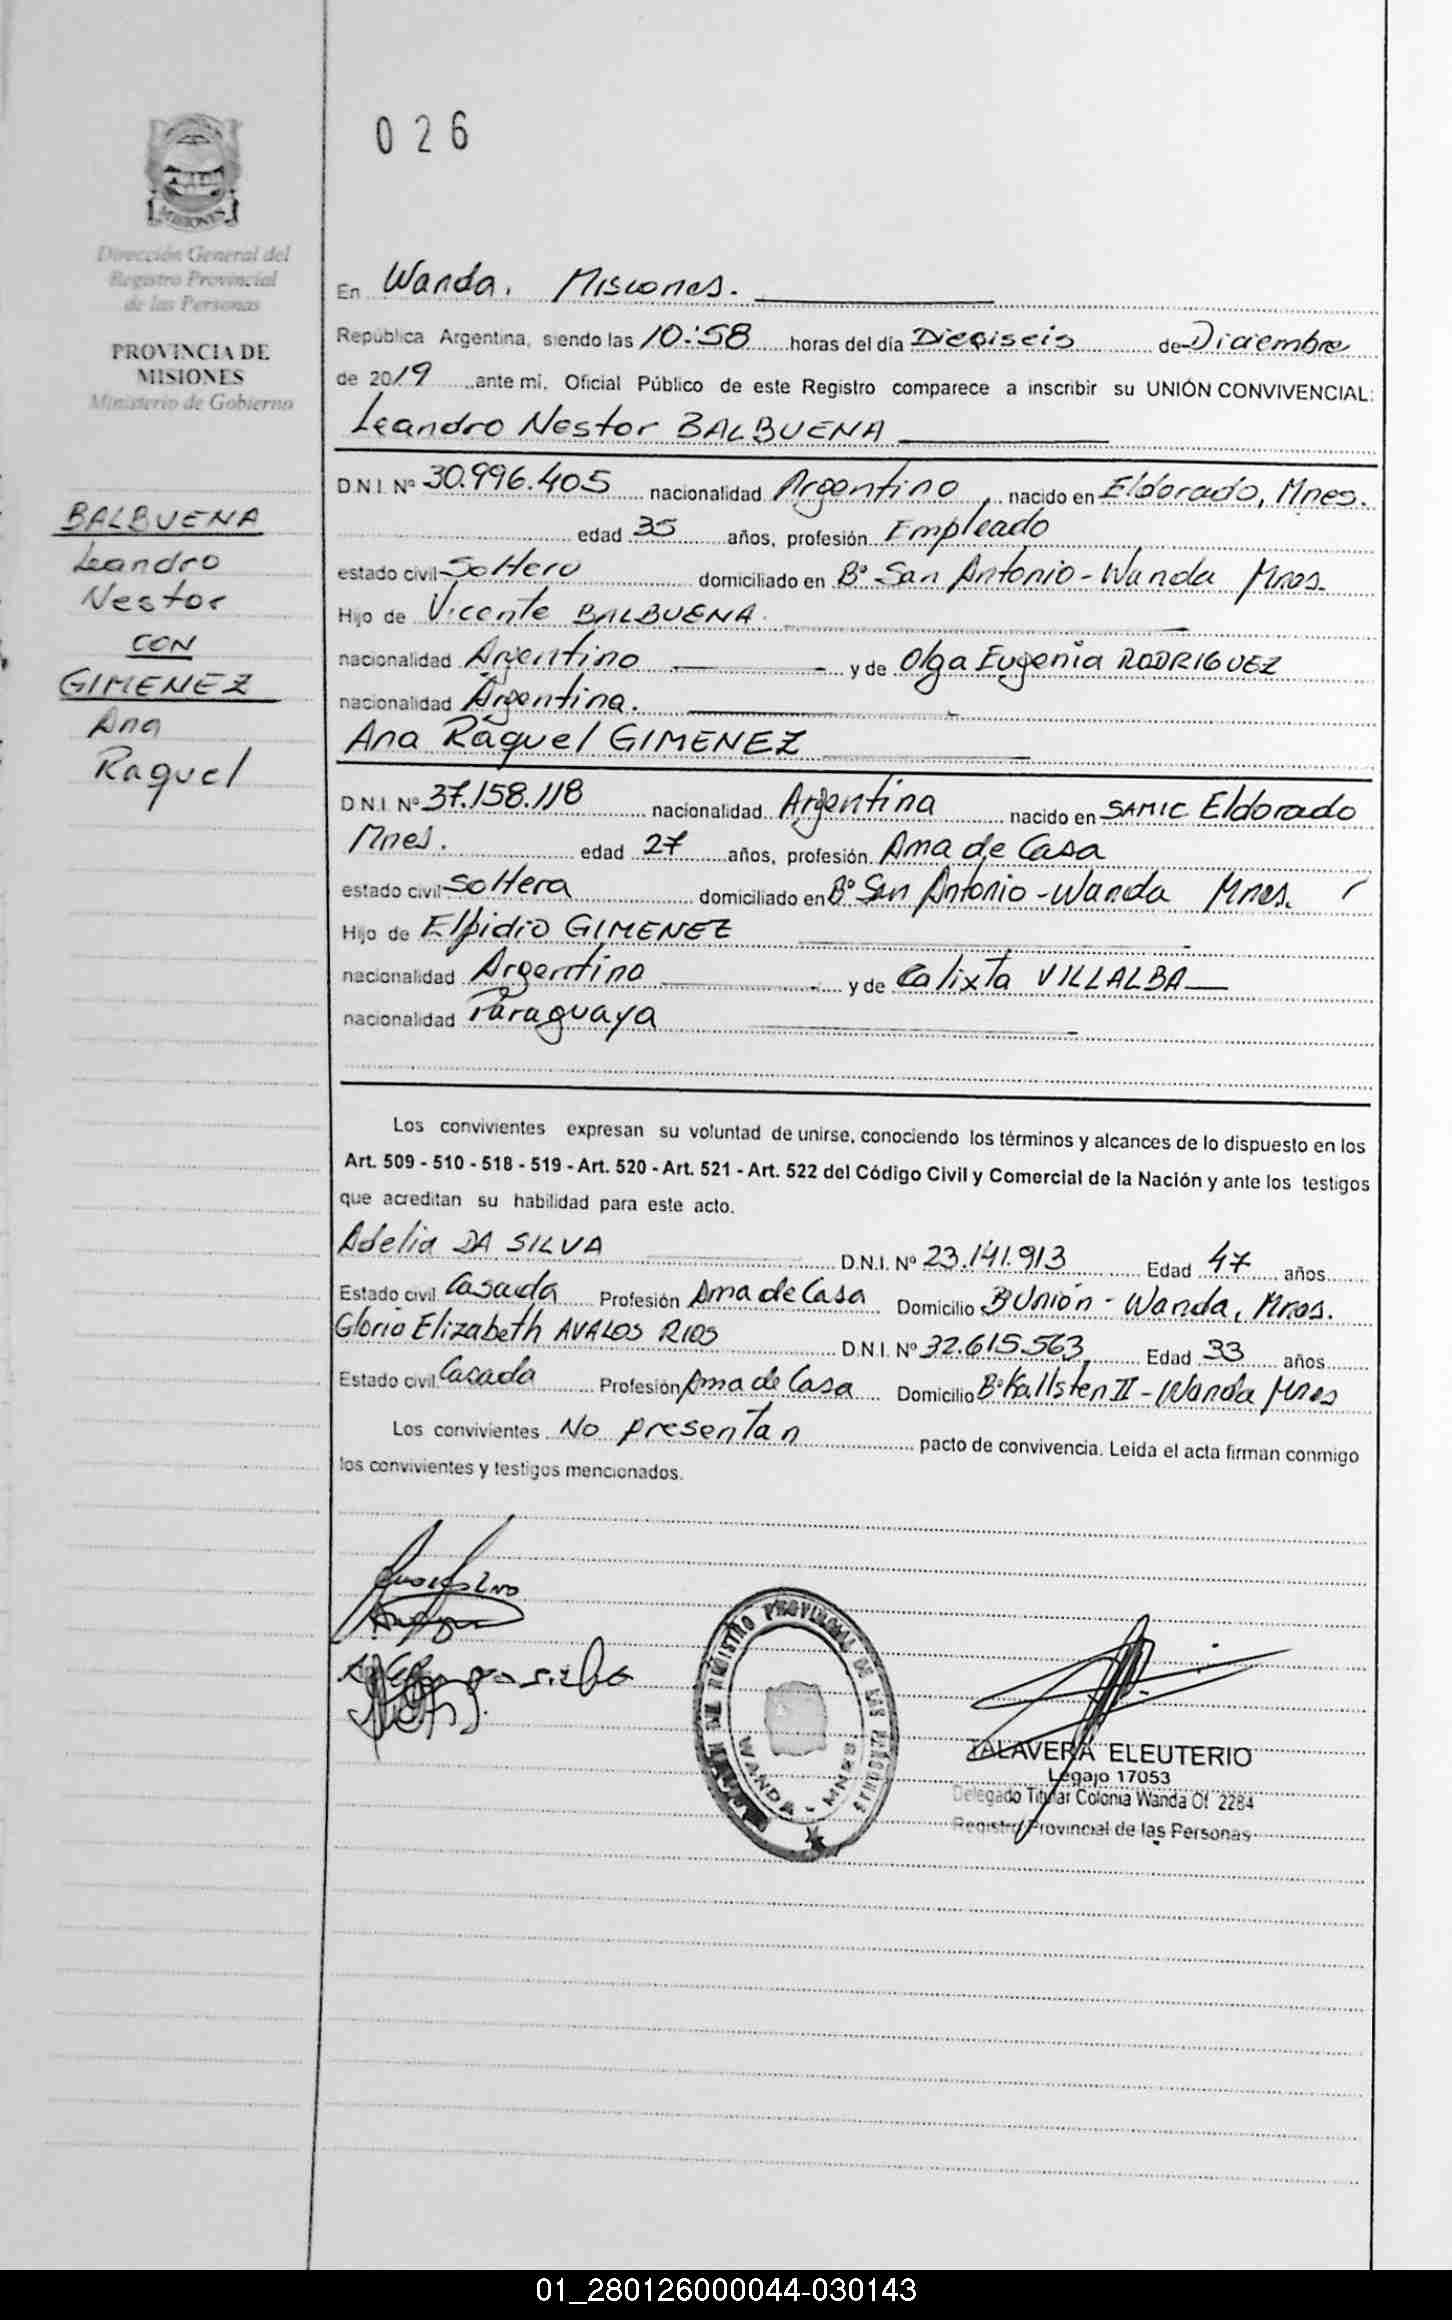 026
MISIONES
Dirección General del
Registro Provincial
de las Personas
PROVINCIA DE
MISIONES
Ministerio de Gobierno
BALBUENA
Leandro
Nestor
CON
GIMENEZ
Ana
Raquel
En Wanda. Misiones.
República Argentina, siendo las 10:58 horas del día Dieciseis de Diciembre
de 2019 ante mi, Oficial Público de este Registro comparece a inscribir su UNIÓN CONVIVENCIAL:
Leandro Nestor BALBUENA
D.N.I. Nº 30.996.405 nacionalidad Argentino, nacido en Eldorado, Mnes.
edad 35 años, profesión Empleado
estado civil Soltero domiciliado en Bº San Antonio - Wanda Mnes.
Hijo de Vicente BALBUENA.
nacionalidad Argentino y de Olga Eugenia RODRIGUEZ
nacionalidad Argentina.
Ana Raquel GIMENEZ
D.N.I. Nº 37.158.118 nacionalidad Argentina nacido en SAMIC Eldorado
Mnes. edad 27 años, profesión Ama de Casa
estado civil Soltera domiciliado en Bº San Antonio - Wanda Mnes.
Hijo de Elpidio GIMENEZ
nacionalidad Argentino y de Calixta VILLALBA
nacionalidad Paraguaya
Los convivientes expresan su voluntad de unirse, conociendo los términos y alcances de lo dispuesto en los
Art. 509 - 510 - 518 - 519 - Art. 520 - Art. 521 - Art. 522 del Código Civil y Comercial de la Nación y ante los testigos
que acreditan su habilidad para este acto.
Adelia DA SILVA D.N.I. Nº 23.141.913 Edad 47 años
Estado civil Casada Profesión Ama de Casa Domicilio B Unión - Wanda, Mnes.
Gloria Elizabeth AVALOS RIOS D.N.I. Nº 32.615.563, Edad 33 años
Estado civil Casada Profesión Ama de Casa Domicilio Bº Kallsten II - Wanda Mnes
Los convivientes No presentan pacto de convivencia. Leída el acta firman conmigo
los convivientes y testigos mencionados.
REGISTRO PROVINCIAL DE LAS PERSONAS
WANDA - MNES
TALAVERA ELEUTERIO
Legajo 17053
Delegado Titular Colonia Wanda Of. 2284
Registro Provincial de las Personas
01_280126000044-030143